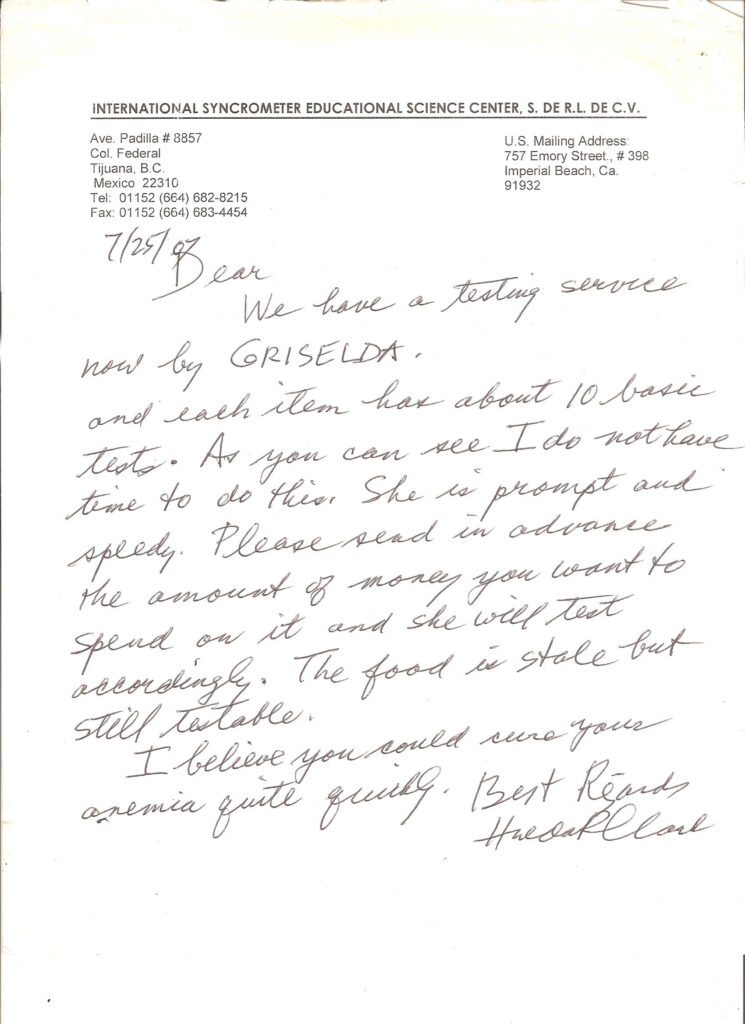 INTERNATIONAL SYNCROMETER EDUCATIONAL SCIENCE CENTER, S. DE R.L. DE C.V.
Ave. Padilla # 8857
Col. Federal
Tijuana, B.C.
Mexico 22310
Tel: 01152 (664) 682-8215
Fax: 01152 (664) 683-4454
U.S. Mailing Address:
757 Emory Street., # 398
Imperial Beach, Ca.
91932
7/25/07
Dear
We have a testing service
now by GRISELDA.
and each item has about 10 basic
tests. As you can see I do not have
time to do this. She is prompt and
speedy. Please send in advance
the amount of money you want to
spend on it and she will test
accordingly. The food is stale but
still testable.
I believe you could cure your
anemia quite quickly. Best Regards
Hulda R Clark